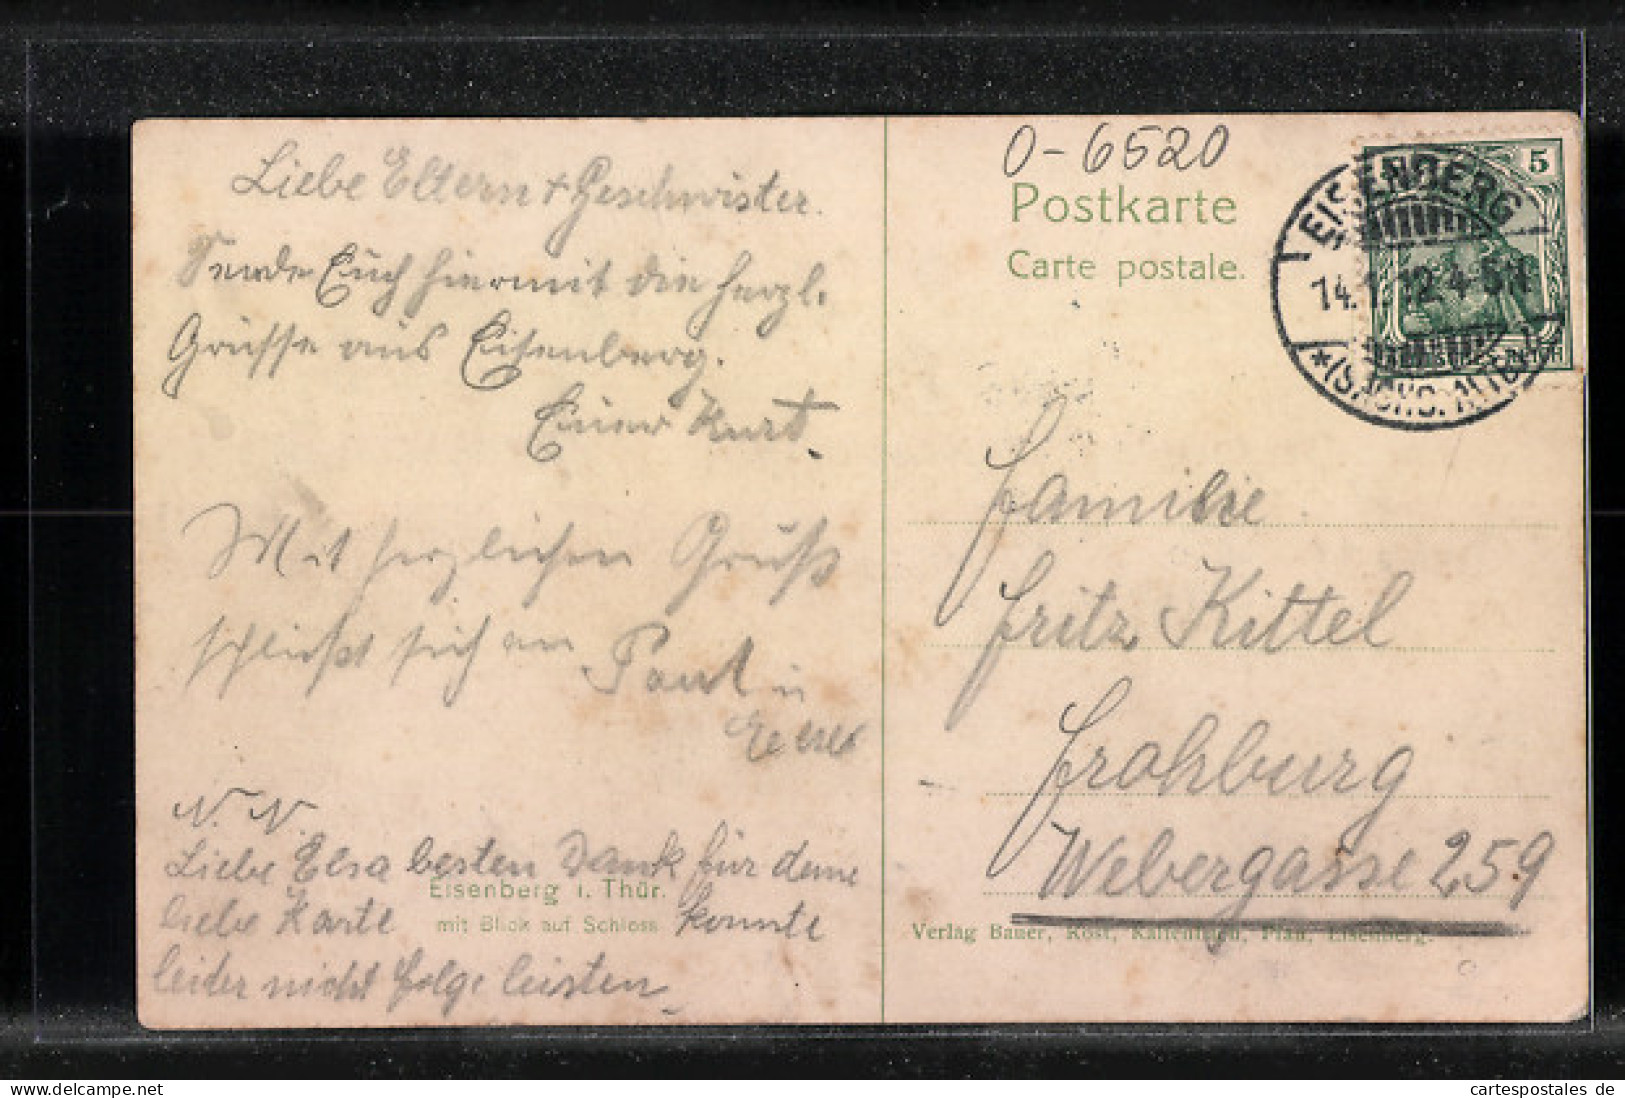 Liebe Eltern + Geschwister.
Sende Euch hiermit die herzl.
Grüsse aus Eisenberg.
Euer Kurt.
Mit herzlichen Gruß
schließt sich an Paul u
N. N.
Liebe Elsa besten Dank für deine
liebe Karte konnte
leider nicht folge leisten
Eisenberg i. Thür.
mit Blick auf Schloss
O-6520
Postkarte
Carte postale.
5
EISENBERG
14.1.12. 4-5N
*(SACHS. ALTB.)
Familie
Fritz Kittel
Frohburg
Webergasse 259
Verlag Bauer, Rost, Kaltenhagen, Pfau, Eisenberg.
www.delcampe.net
cartespostales de